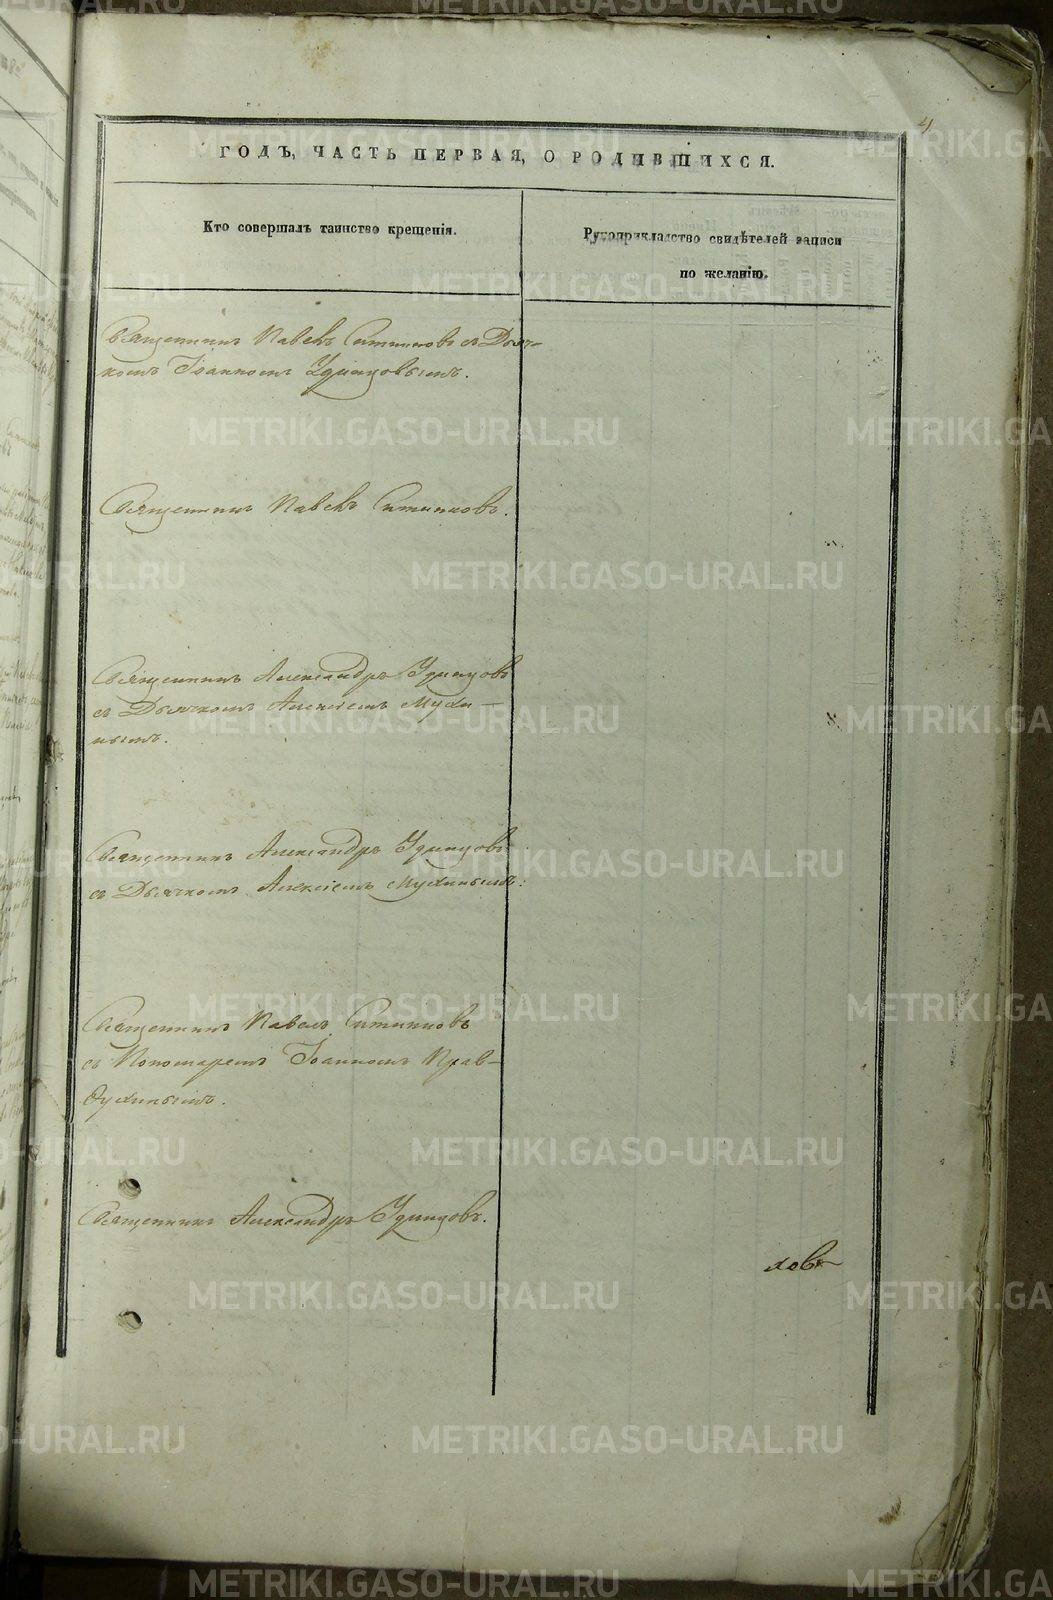 4
ГОДЪ, ЧАСТЬ ПЕРВАЯ, О РОДИВШИХСЯ.
Кто совершалъ таинство крещенія.
Рукоприкладство свидѣтелей записи
по желанію.
Священникъ Павелъ Ситниковъ съ Дьяч-
комъ Іоанномъ Удинцовымъ.
Священникъ Павелъ Ситниковъ.
Священникъ Александръ Удинцовъ
съ Дьячкомъ Алексіемъ Мухи-
нымъ.
Священникъ Александръ Удинцовъ
съ Дьячкомъ Алексіемъ Мухинымъ.
Священникъ Павелъ Ситниковъ
съ Пономаремъ Іоанномъ Прав-
духинымъ.
Священникъ Александръ Удинцовъ.
METRIKI.GASO-URAL.RU